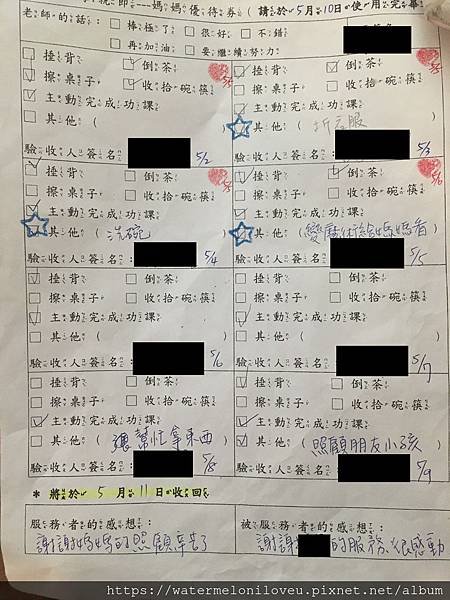 媽媽優待券(請於5月10日使用完畢
老師的話:□棒極了 □很好 □不錯
□再加油 □要繼續努力
□搥背 □倒茶 □搥背 □倒茶
□擦桌子 □收拾碗筷 □擦桌子 □收拾碗筷
□主動完成功課 □主動完成功課
□其他( ) □其他(折衣服
驗收人簽名 5/2 驗收人簽名: 5/3
□搥背 □倒茶 □搥背 □倒茶
□擦桌子 □收拾碗筷 □擦桌子 □收拾碗筷
□主動完成功課 □主動完成功課
□其他(洗碗 ) □其他(變魔術給媽媽看)
驗收人簽名: 5/4 驗收人簽名: 5/5
□搥背 □倒茶 □搥背 □倒茶
□擦桌子 □收拾碗筷 □擦桌子 □收拾碗筷
□主動完成功課 □主動完成功課
□其他( ) □其他( )
驗收人簽名: 5/6 驗收人簽名: 5/7
□搥背 □倒茶 □搥背 □倒茶
□擦桌子 □收拾碗筷 □擦桌子 □收拾碗筷
□主動完成功課 □主動完成功課
□其他( 幫忙拿東西) □其他(照顧朋友小孩)
驗收人簽名: 5/8 驗收人簽名: 5/9
*將於5月11日收回
服務者的感想: 被服務者的感想:
謝謝媽媽的照顧辛苦了 謝謝 的服務,很感動
https://watermeloniloveu.pixnet.net/album